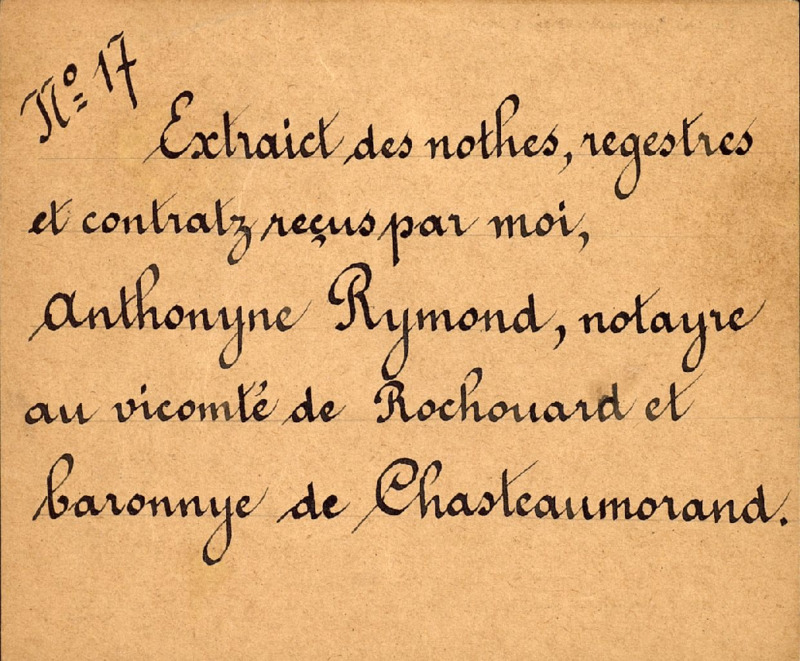 Nº 17
Extraict des nothes, regestres
et contratz reçus par moi,
Anthonyne Rymond, notayre
au vicomté de Rochouard et
baronnye de Chasteaumorand.